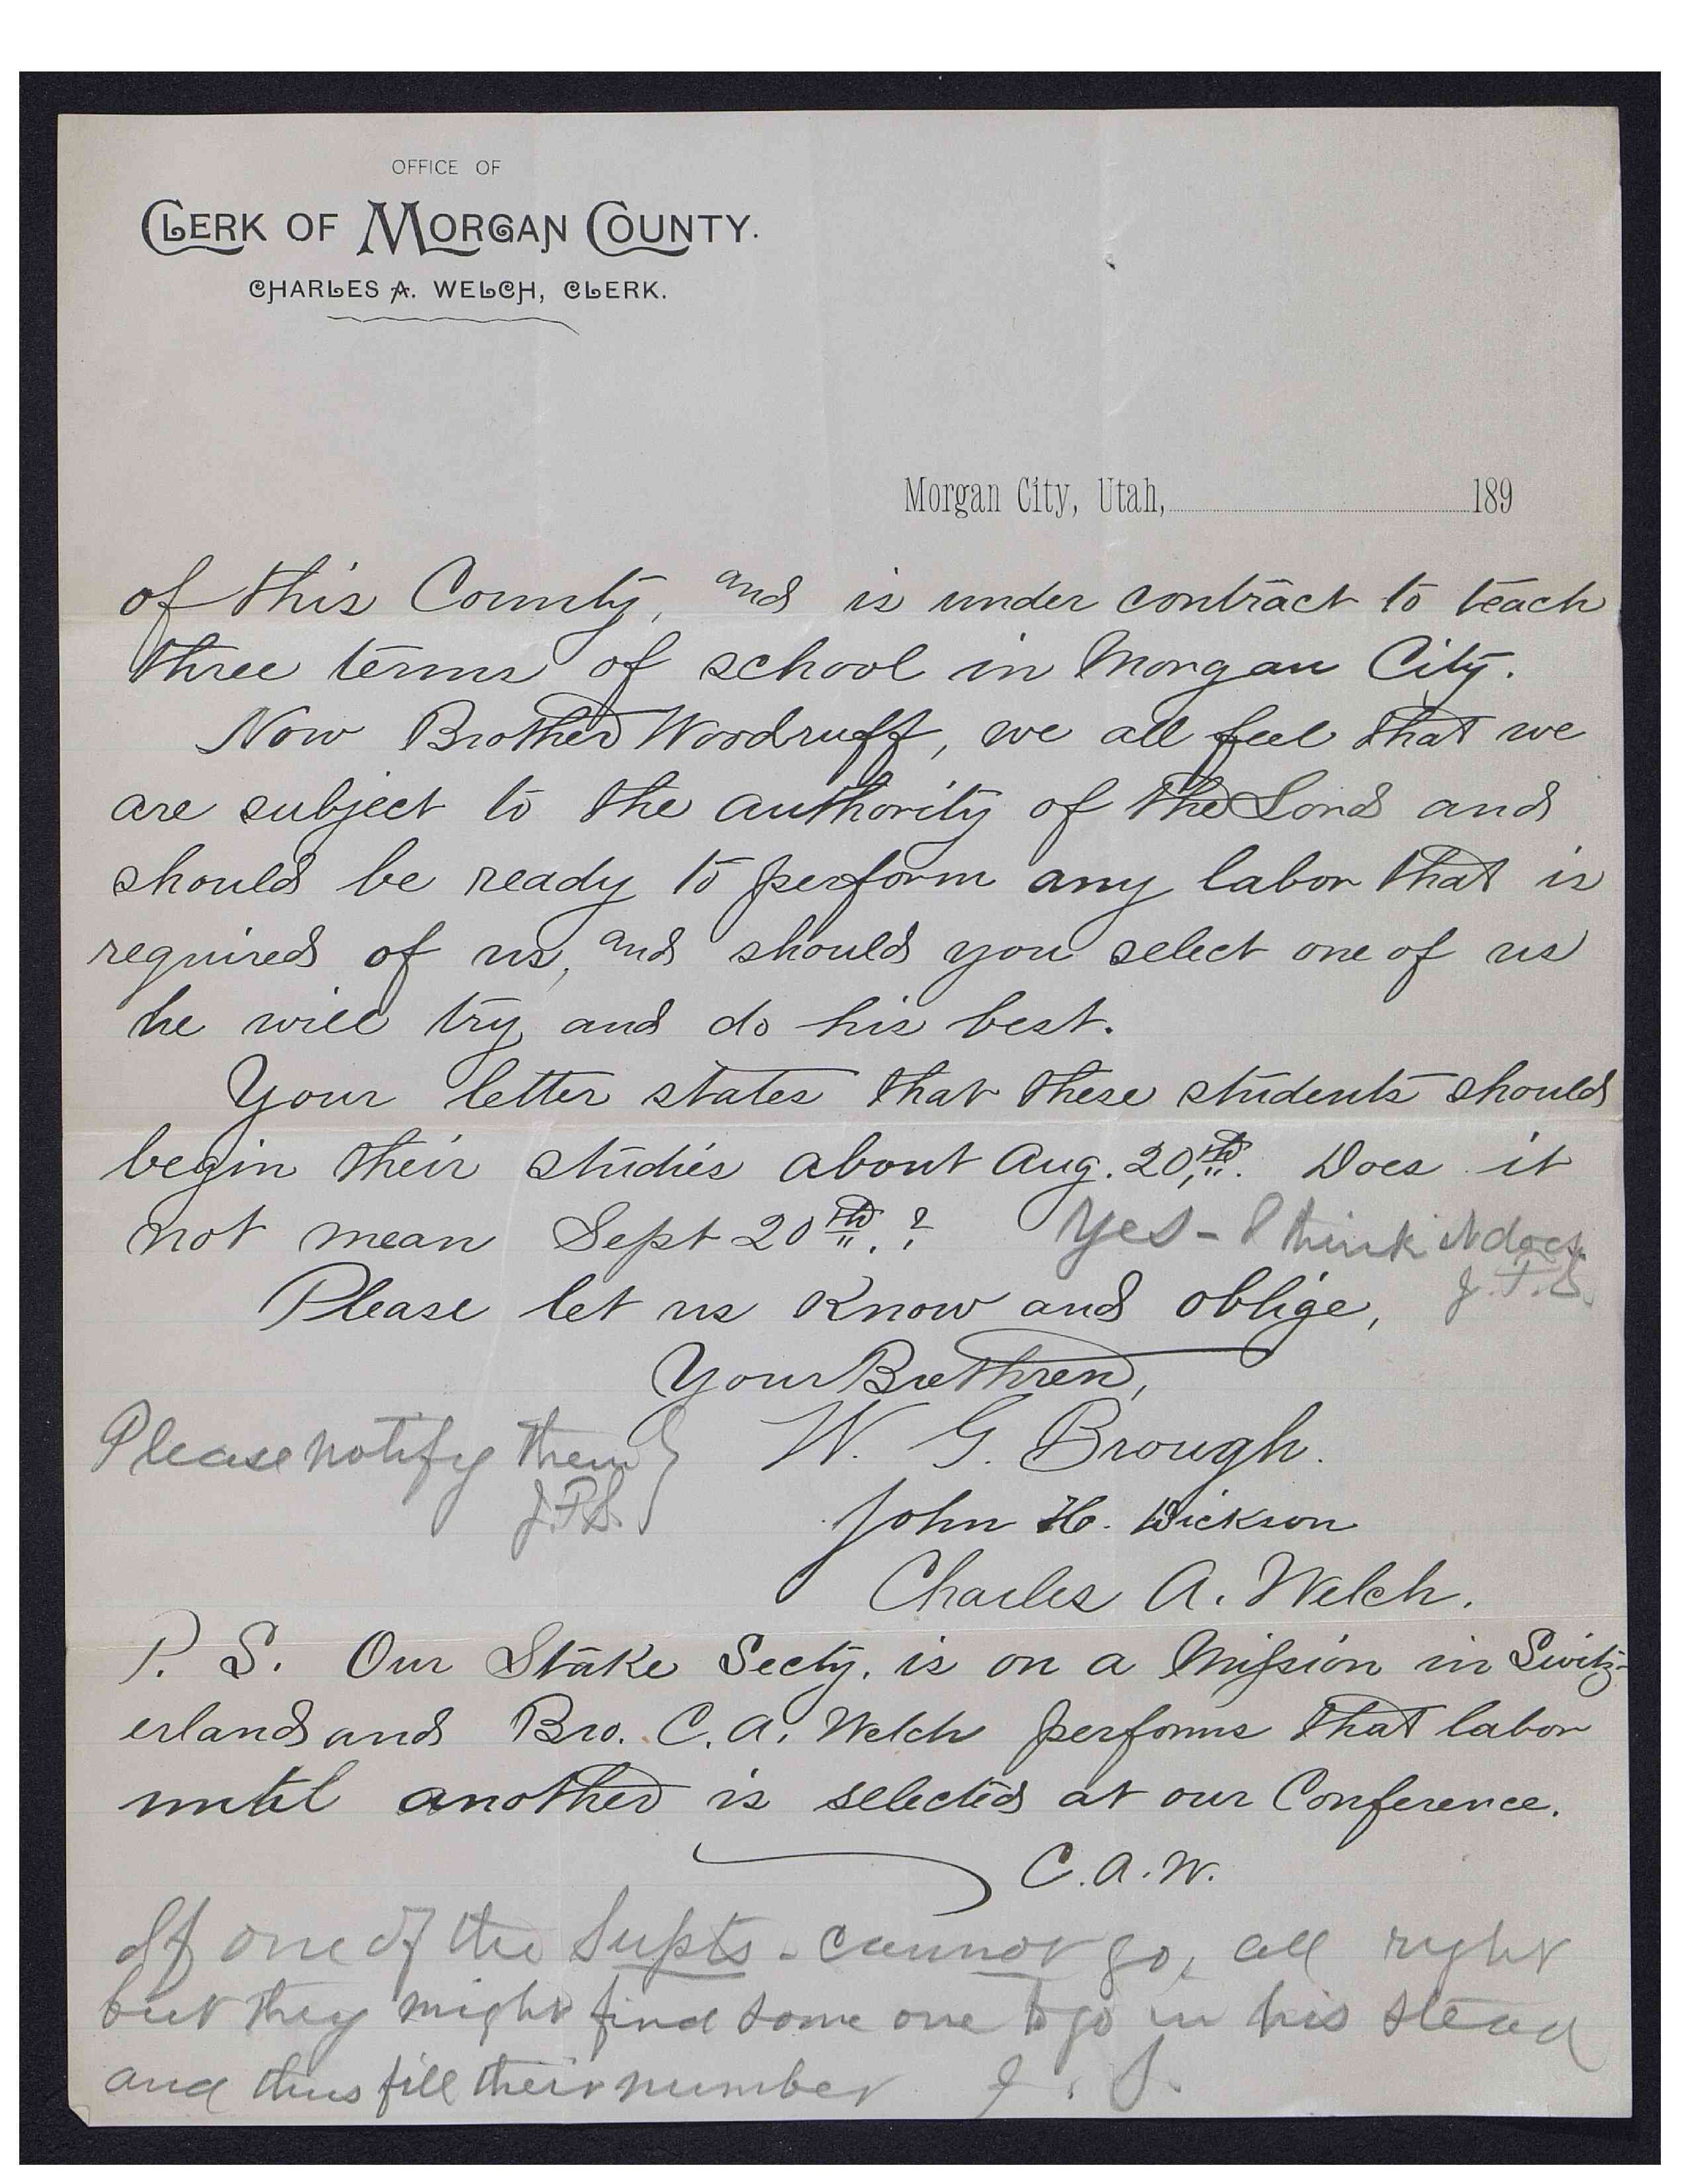 OFFICE OF
CLERK OF MORGAN COUNTY.
CHARLES A. WELCH, CLERK.
Morgan City, Utah, 189
of this County, and is under contract to teach
three terms of school in Morgan City.
Now Brother Woodruff, we all feel that we
are subject to the authority of the Lord and
should be ready to perform any labor that is
required of us, and should you select one of us
he will try and do his best.
Your letter states that these students should
begin their studies about Aug. 20th. Does it
not mean Sept 20th.? Yes - I think it does.
J.F.S.
Please let us know and oblige,
Your Brethren,
Please notify them } W. G. Brough.
J.F.S.
John H. Dickson
Charles A. Welch.
P. S. Our Stake Secty. is on a Mission in Switz-
erland and Bro. C. A. Welch performs that labor
until another is selected at our Conference.
C.A.W.
If one of the Supts - cannot go, all right
but they might find some one to go in his stead
and thus fill their number J. S.